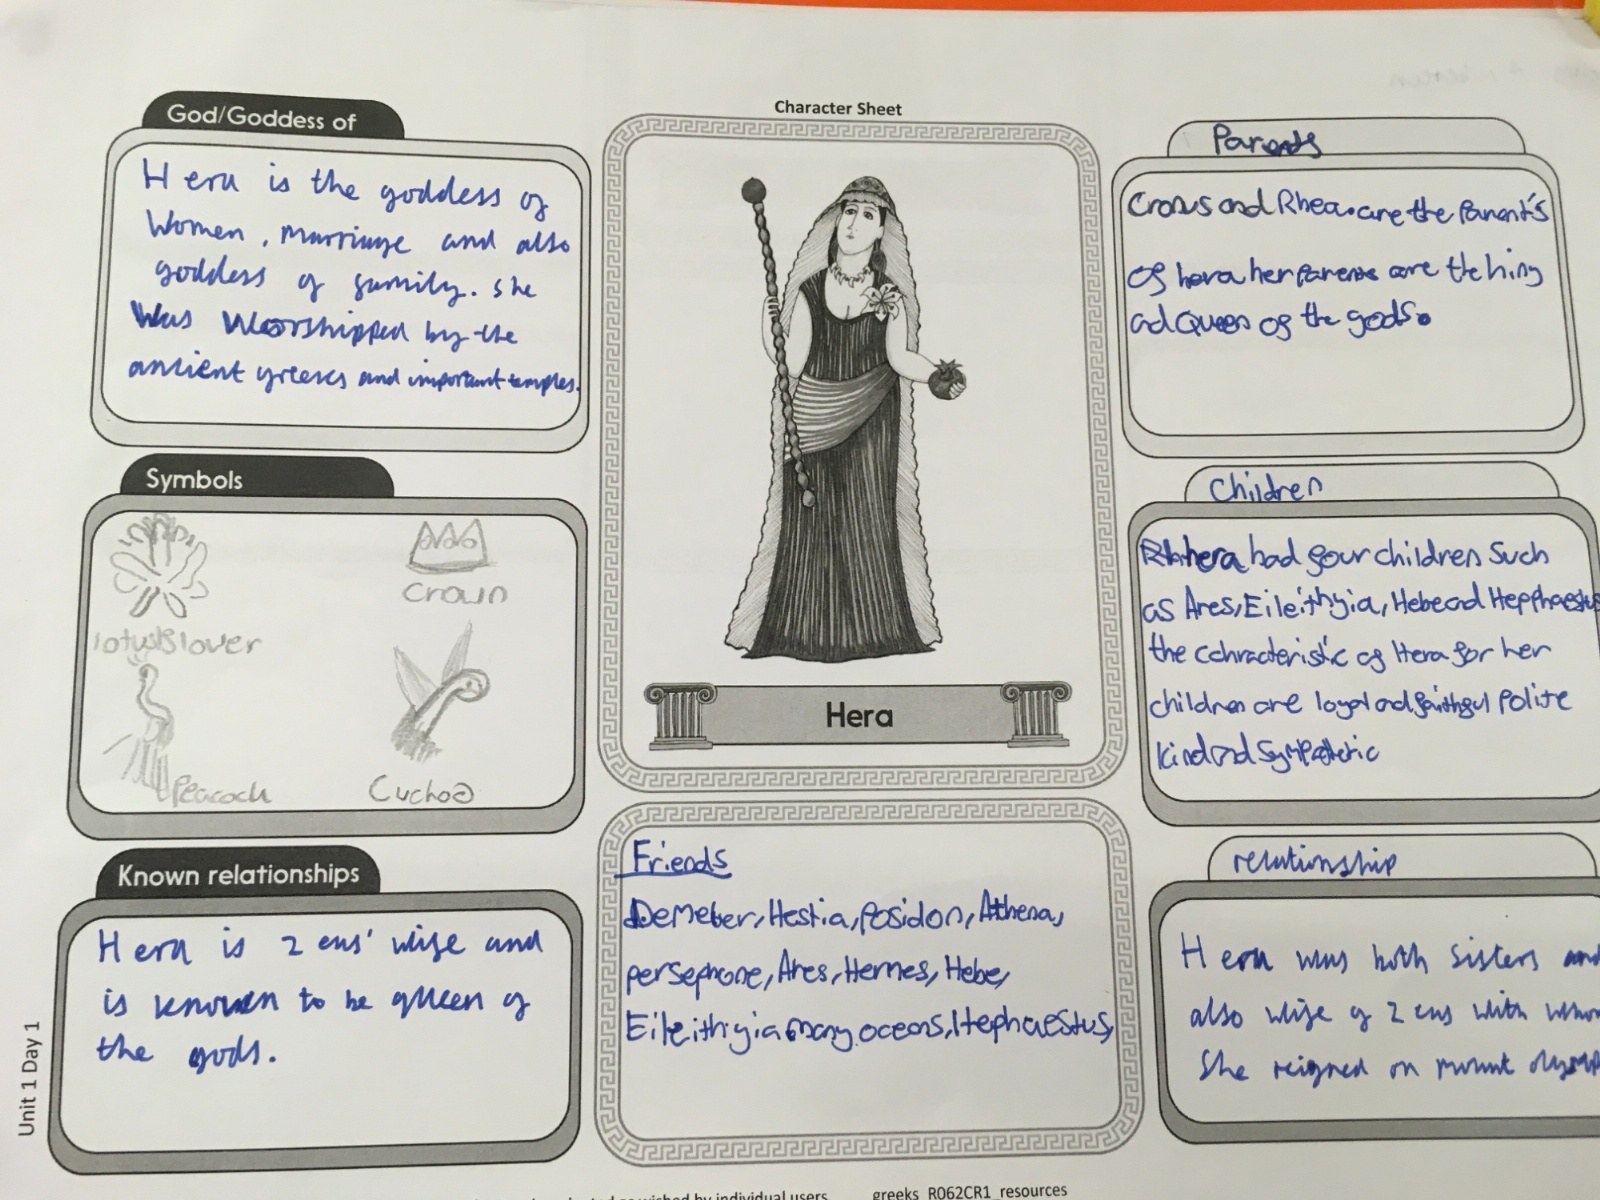 Character Sheet
God/Goddess of
Hera is the goddess of
Women, marriage and also
goddess of family. She
was Worshipped by the
ancient greeces and important temples.
Symbols
crown
Peacock
Cuckoo
Known relationships
Hera is Zeus' wife and
is known to be queen of
the gods.
Hera
Friends
Demeter, Hestia, Posidon, Athena,
persephone, Ares, Hermes, Hebe,
Eileithyia many oceans, Hephaestus,
Parents
Cronus and Rhea. are the Parent's
of hera her parents are the king
ad Queen of the gods.
Children
hera had four children Such
as Ares, Eileithyia, Hebe ad Hepphaestus
the cahracteristic of Hera for her
children are loyal ad faithful Polite
kind ad Sympathetic
relationship
Hera was both sisters and
also wife of Zeus with whom
She reigned on mount
Unit 1 Day 1
wished by individual users
greeks_R062CR1_resources